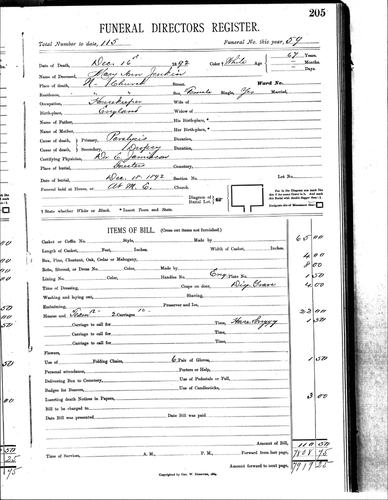 205
FUNERAL DIRECTORS REGISTER.
Total Number to date, 115 Funeral No. this year, 59
Date of Death, Dec 16th 1892 Color † White Age 67 Years.
— Months.
— Days.
Name of Deceased, Mary Ann Jenkin
Place of death, N. Church Street. Ward No.
Residence, " " Sex, Female Single, Yes Married,
Occupation, Housekeeper Wife of
Birthplace, England Widow of
Name of Father, His Birthplace, *
Name of Mother, Her Birthplace, *
Cause of death, Primary, Paralysis Duration,
Cause of death, Secondary, Dropsy Duration,
Certifying Physician, Dr E. Jamieson
Place of burial, Cemetery,
Date of burial, Dec. 18. 1892 Section No. Lot No.
Funeral held at House, or At M. E. Church. Diagram of Burial Lot.
† State whether White or Black. * Insert Town and State.
ITEMS OF BILL. (Cross out items not furnished.)
Casket or Coffin No. Style, Manufactured by 65 00
Length of Casket, Feet, Inches. Width of Casket, Inches.
Box, Pine, Chestnut, Oak, Cedar or Mahogany, 4 00
Robe, Shroud, or Dress No. Color, Made by 8 00
Lining No. Color, Handles No. Eng Plate No. 1 50
Time of Dressing, Crape on door, Dig Grave 4 00
Washing and laying out, Shaving,
Embalming, Preserver and Ice,
Hearse and Team 12 2 Carriages 10 22 00
Carriage to call for Time, Horse Buggy 1 50
Carriage to call for Time,
Carriage to call for Time,
Flowers,
Use of Folding Chairs, 6 Pair of Gloves, 1 50
Personal attendance, Porters or Help,
Delivering Box to Cemetery, Use of Pedestals or Pall,
Badges for Bearers, Use of Candlesticks,
Inserting Death Notices in Papers, 3 00
Bill to be charged to
Date Bill was presented Date Bill was paid
Amount of Bill, 110 50
Time of Services, A. M., P. M., Forward from last page, 7808 75
Amount forward to next page, 7919 25